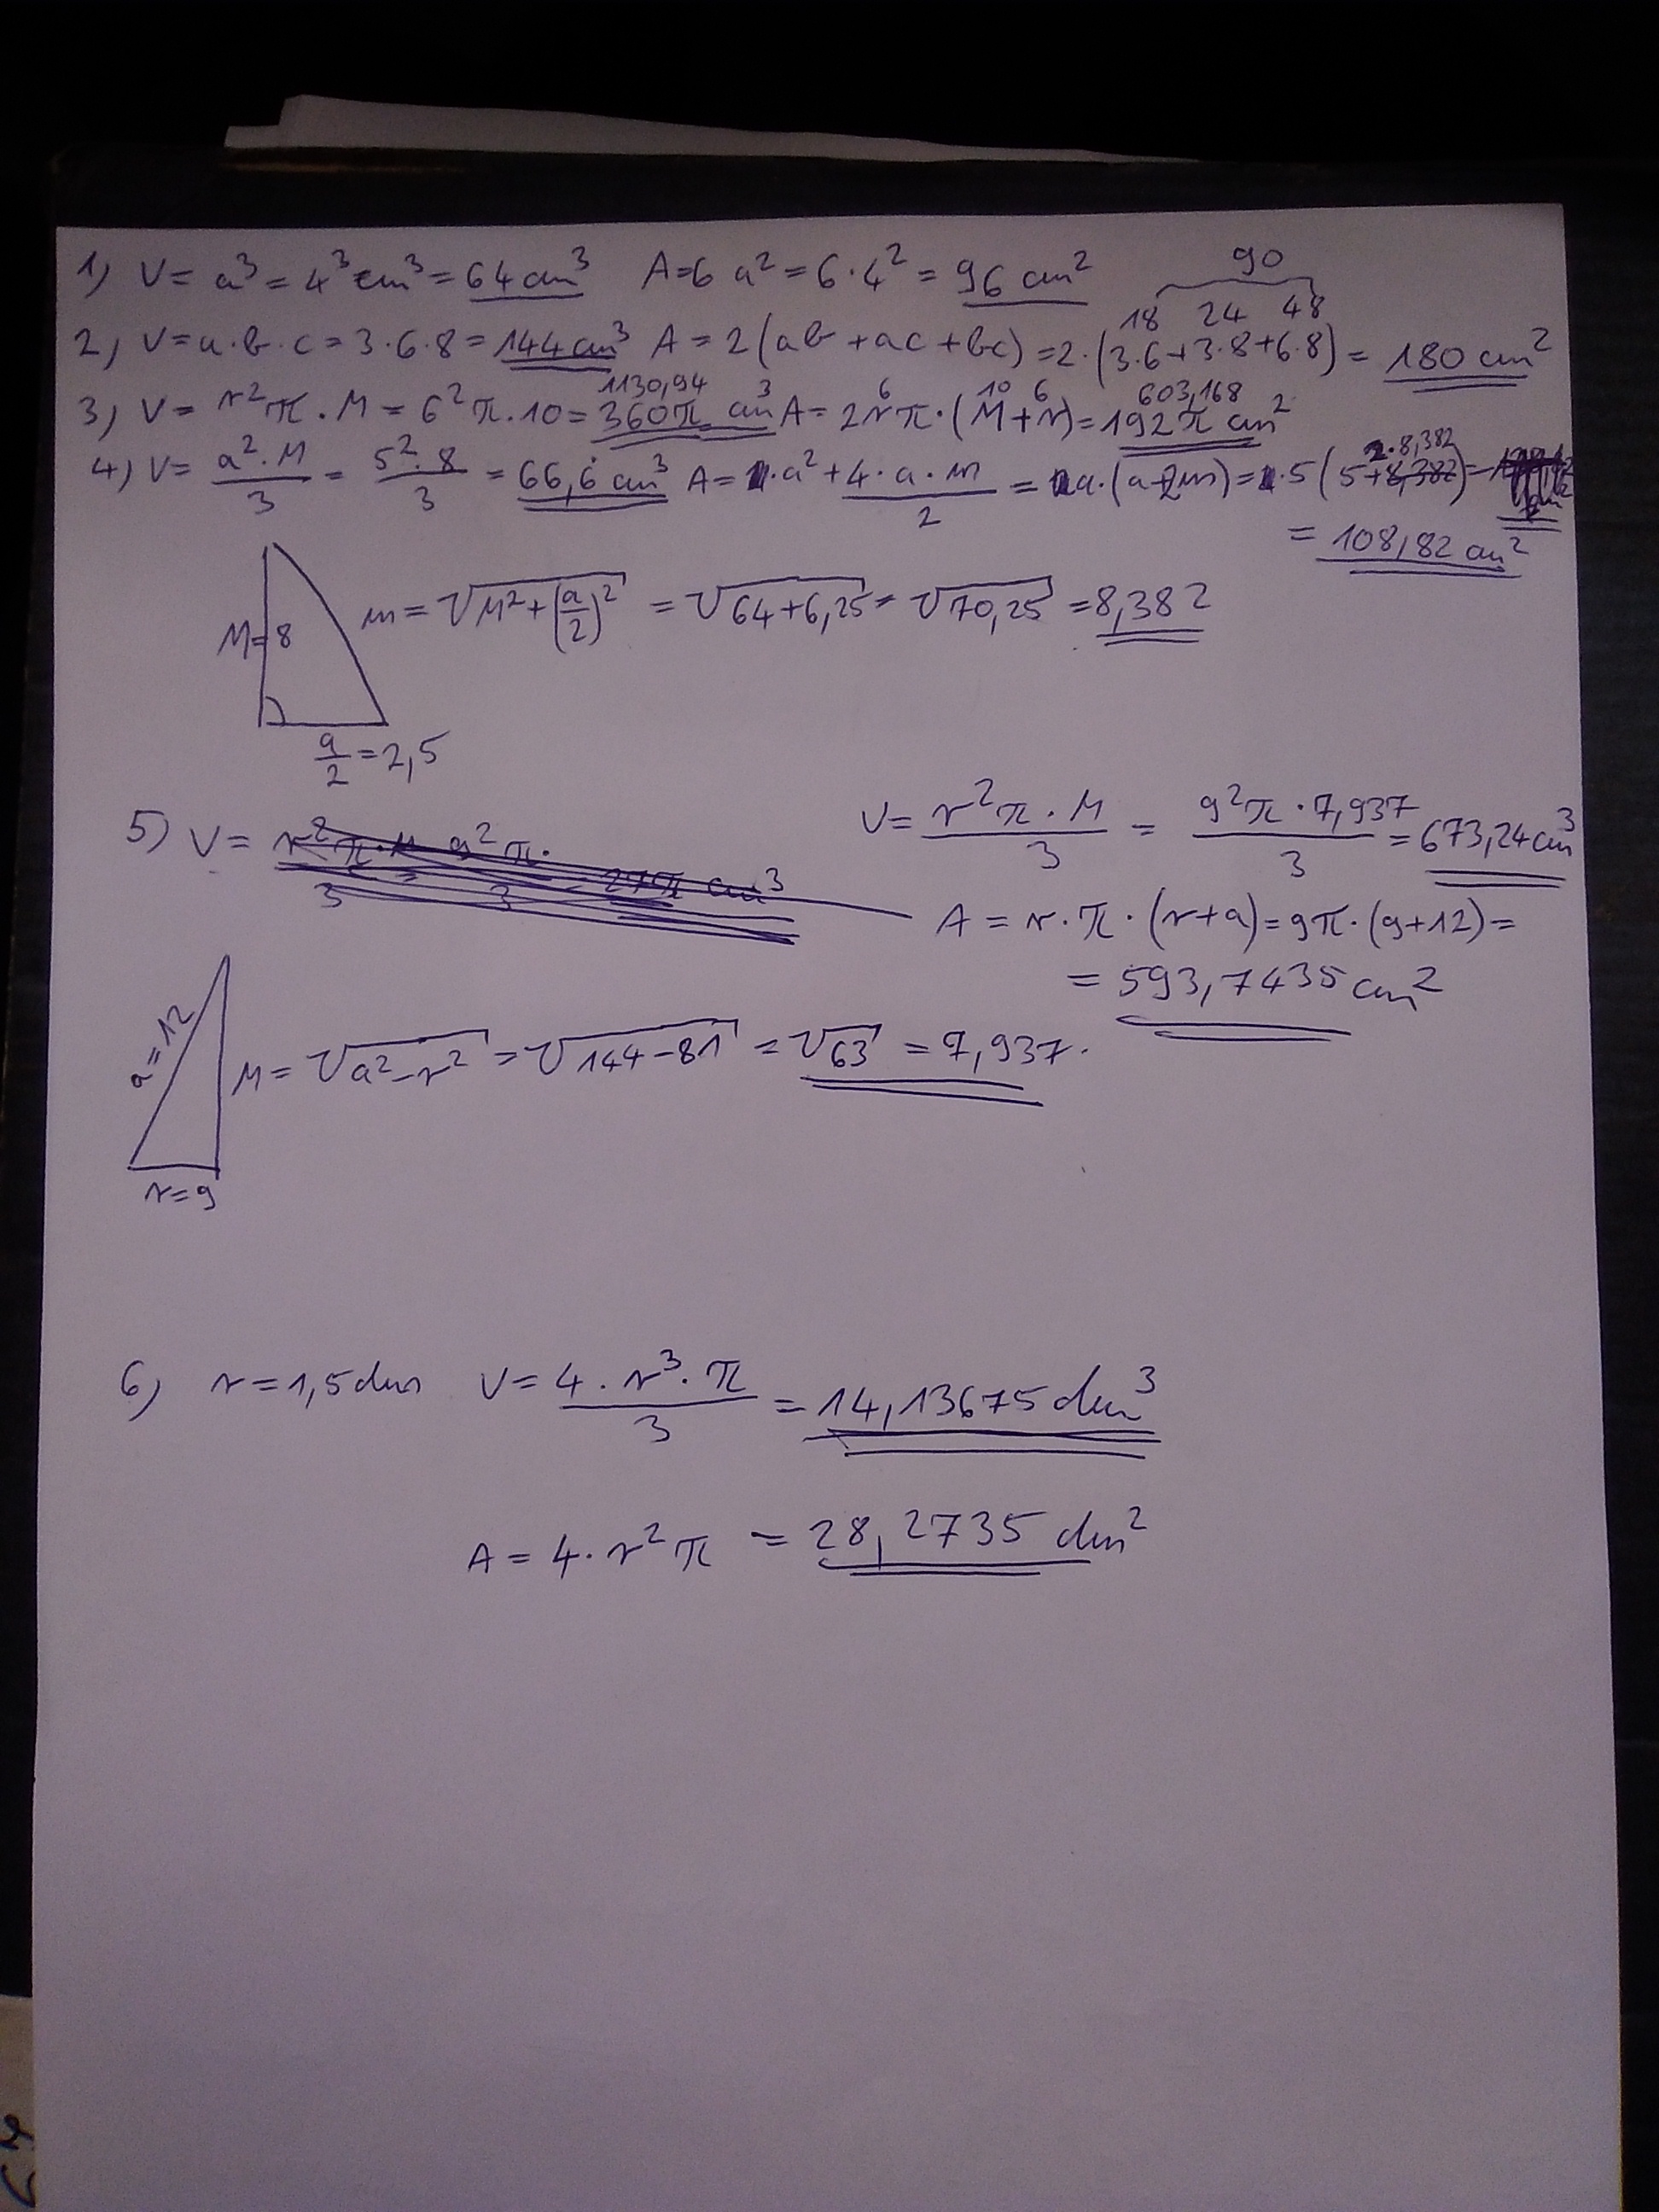 1) V = a³ = 4³ cm³ = 64 cm³ A = 6 a² = 6·4² = 96 cm²
90
18 24 48
2) V = a·b·c = 3·6·8 = 144 cm³ A = 2(ab + ac + bc) = 2·(3·6+3·8+6·8) = 180 cm²
1130,94 6 10 6 603,168
3) V = r²π·M = 6²π·10 = 360π cm³ A = 2rπ·(M+r) = 192π cm²
2·8,382
4) V = a²·M/3 = 5²·8/3 = 66,6 cm³ A = 1·a² + 4·a·m/2 = a·(a+2m) = 1·5(5+8,382) =
= 108,82 cm²
M=8 m = √(M²+(a/2)²) = √(64+6,25) = √70,25 = 8,382
a/2 = 2,5
V = r²π·M/3 = 9²π·7,937/3 = 673,24 cm³
5) V = r²π·M/3 = 9²π·/3 = 27π cm³
A = r·π·(r+a) = 9π·(9+12) =
= 593,7435 cm²
a=12 M = √(a²-r²) = √(144-81) = √63 = 7,937.
r=9
6) r = 1,5 dm V = 4·r³·π/3 = 14,13675 dm³
A = 4·r²π = 28,2735 dm²